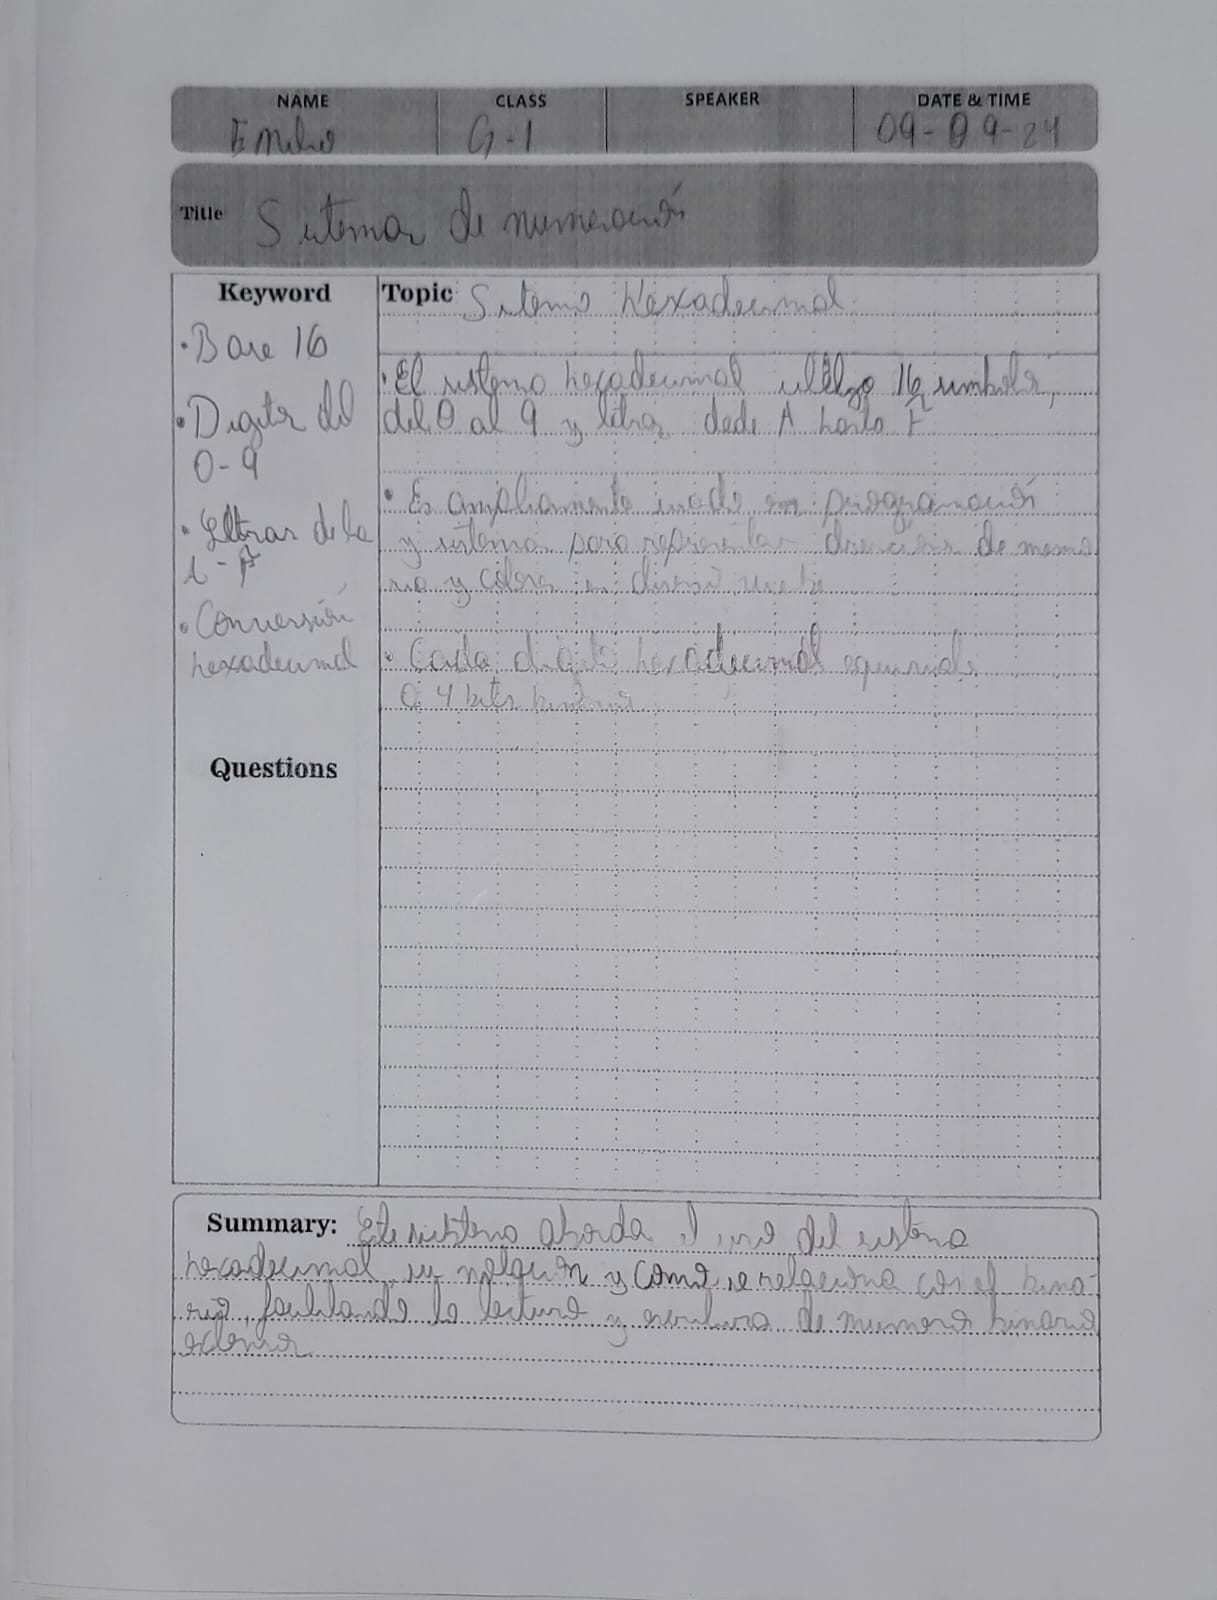 NAME CLASS SPEAKER DATE & TIME
Emilio G-1 09-09-24
Title Sistemas de numeración
Keyword
• Base 16
• Digitos del
0-9
• Letras de la
A-F
• Conversión
hexadecimal
Questions
Topic Sistema Hexadecimal
• El sistema hexadecimal utiliza 16 simbolos,
del 0 al 9 y letras desde A hasta F
• Es ampliamente usado en programación
y sistemas para representar direcciones de memo
ria y colores en diseño web
• Cada digito hexadecimal equivale
a 4 bits binarios
Summary: Este sistema aborda el uso del sistema
hexadecimal, su y como se relaciona con el bina-
rio, facilitando la lectura y escritura de numeros binarios